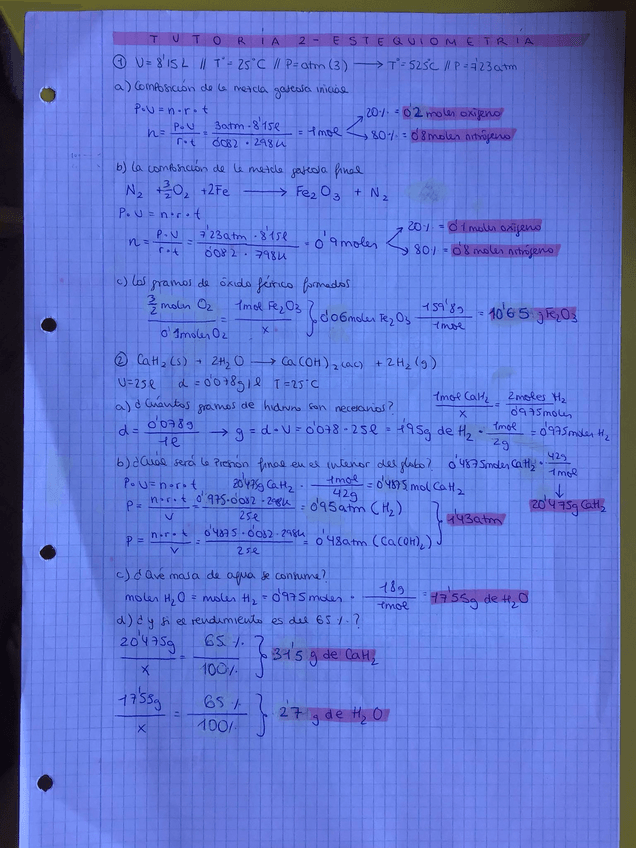 TUTORÍA 2 - ESTEQUIOMETRÍA
① V = 8'15 L // Tª = 25°C // P = atm (3) → Tª = 525°C // P = 7'23 atm
a) Composición de la mezcla gaseosa inicial
P·V = n·r·t
n = P·V / r·t = 3atm · 8'15l / 0'082 · 298K = 1mol → 20% = 0'2 moles oxígeno
→ 80% = 0'8 moles nitrógeno
b) La composición de la mezcla gaseosa final
N₂ + 3/2 O₂ + 2Fe → Fe₂O₃ + N₂
P·V = n·r·t
n = P·V / r·t = 7'23atm · 8'15l / 0'082 · 798K = 0'9 moles → 20% = 0'1 moles oxígeno
→ 80% = 0'8 moles nitrógeno
c) Los gramos de óxido férrico formados
3/2 moles O₂ / 0'1 moles O₂ = 1mol Fe₂O₃ / x } 0'06 moles Fe₂O₃ · 159'8g / 1mol = 10'65 g Fe₂O₃
② CaH₂(s) + 2H₂O → Ca(OH)₂(ac) + 2H₂(g)
V = 25l d = 0'078g/l T = 25°C
1mol CaH₂ / x = 2moles H₂ / 0'975moles
a) ¿Cuántos gramos de hidruro son necesarios?
d = 0'078g / 1l → g = d·V = 0'078 · 25l = 1'95g de H₂ · 1mol / 2g = 0'975 moles H₂
b) ¿Cuál será la presión final en el interior del globo? 0'4875moles CaH₂ · 42g / 1mol
P·V = n·r·t 20'475g CaH₂ · 1mol / 42g = 0'4875 mol CaH₂
↓
20'475g CaH₂
P = n·r·t / V = 0'975·0'082·298K / 25l = 0'95 atm (H₂)
} 1'43atm
P = n·r·t / V = 0'4875·0'082·298K / 25l = 0'48 atm (Ca(OH)₂)
c) ¿Qué masa de agua se consume?
moles H₂O = moles H₂ = 0'975 moles · 18g / 1mol = 17'55g de H₂O
d) ¿y si el rendimiento es del 65%?
20'475g / x = 65% / 100% } 31'5 g de CaH₂
17'55g / x = 65% / 100% } 27 g de H₂O